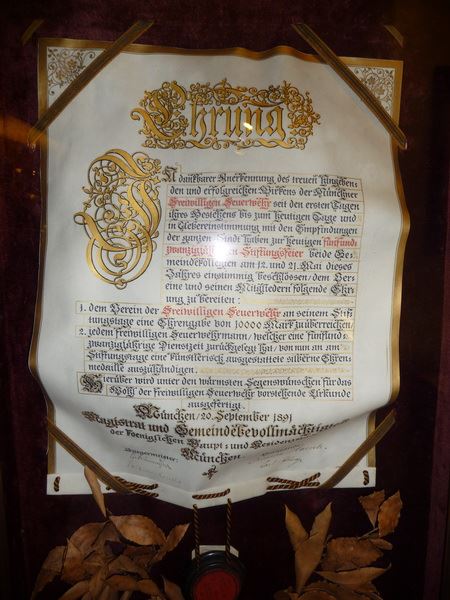 Ehrung
In dankbarer Anerkennung des treuen hingeben-
den und erfolgreichen Wirkens der Münchner
Freiwilligen Feuerwehr seit den ersten Tagen
ihres Bestehens bis zum heutigen Tage und
in Uebereinstimmung mit den Empfindungen
der ganzen Stadt haben zur heutigen fünfund-
zwanzigjährigen Stiftungsfeier beide Ge-
meindekollegien am 12. und 21. Mai dieses
Jahres einstimmig beschlossen, dem Ver-
eine und seinen Mitgliedern folgende Ehr-
ung zu bereiten:
1. dem Verein der Freiwilligen Feuerwehr an seinem Stif-
tungstage eine Ehrengabe von 10000 Mark zu überreichen,
2. jedem freiwilligen Feuerwehrmann, welcher eine fünfund-
zwanzigjährige Dienstzeit zurückgelegt hat, von nun an am
Stiftungstage eine künstlerisch ausgestattete silberne Ehren-
medaille auszuhändigen.
Hierüber wird unter den wärmsten Segenswünschen für das
Wohl der freiwilligen Feuerwehr vorstehende Urkunde
ausgefertigt.
München, 20. September 1891
Magistrat und Gemeindebevollmächtigte
der Koeniglichen Haupt- und Residenz
München
Bürgermeister: